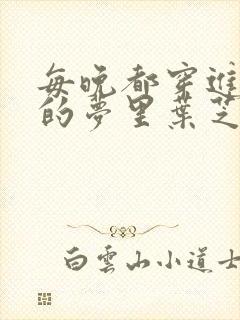 每晚都穿進
的夢里葉芝
白雲山小道士